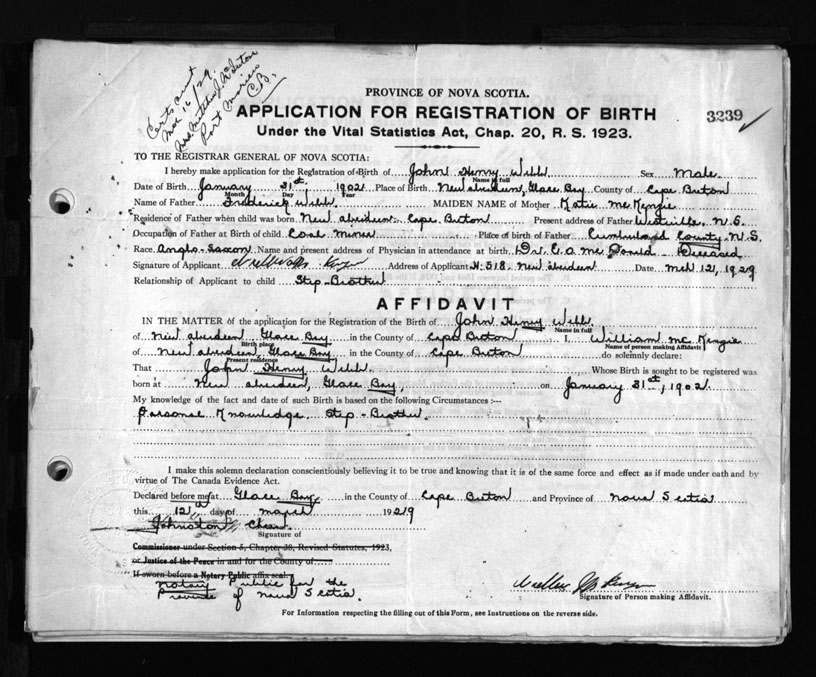 Certs sent
Mar 16/29
Mrs. Mitchel
Port Morien
C.B.
PROVINCE OF NOVA SCOTIA.
APPLICATION FOR REGISTRATION OF BIRTH
3239
Under the Vital Statistics Act, Chap. 20, R. S. 1923.
TO THE REGISTRAR GENERAL OF NOVA SCOTIA:
I hereby make application for the Registration of Birth of John Henry Webb Sex Male
Name in full
Date of Birth January 31st, 1902 Place of Birth New Aberdeen, Glace Bay County of Cape Breton
Month Day Year
Name of Father Frederick Webb MAIDEN NAME of Mother Katie McKenzie
Residence of Father when child was born New Aberdeen Cape Breton Present address of Father Westville, N. S.
Occupation of Father at Birth of child Coal Miner Place of Birth of father Cumberland County N. S.
Race Anglo-Saxon Name and present address of Physician in attendance at birth Dr. McDonald Deceased
Signature of Applicant Address of Applicant H. 518, New Aberdeen Date Mch 12, 1929
Relationship of Applicant to child Step-Brother
AFFIDAVIT
IN THE MATTER of the application for the Registration of the Birth of John Henry Webb
Name in full
of New Aberdeen, Glace Bay in the County of Cape Breton I, William McKenzie
Birth place Name of person making Affidavit
of New Aberdeen, Glace Bay in the County of Cape Breton do solemnly declare:
Present residence
That John Henry Webb Whose Birth is sought to be registered was
born at New Aberdeen, Glace Bay, on January 31st, 1902
My knowledge of the fact and date of such Birth is based on the following Circumstances :—
Personal Knowledge. Step-Brother.
I make this solemn declaration conscientiously believing it to be true and knowing that it is of the same force and effect as if made under oath and by
virtue of The Canada Evidence Act.
Declared before me at Glace Bay in the County of Cape Breton and Province of Nova Scotia
this 12 day of March 1929
Johnston
Signature of
Commissioner under Section 5, Chapter 38, Revised Statutes, 1923,
or Justice of the Peace in and for the County of
If sworn before a Notary Public affix seal.
Notary Public for the
Province of Nova Scotia.
Signature of Person making Affidavit.
For Information respecting the filling out of this Form, see Instructions on the reverse side.